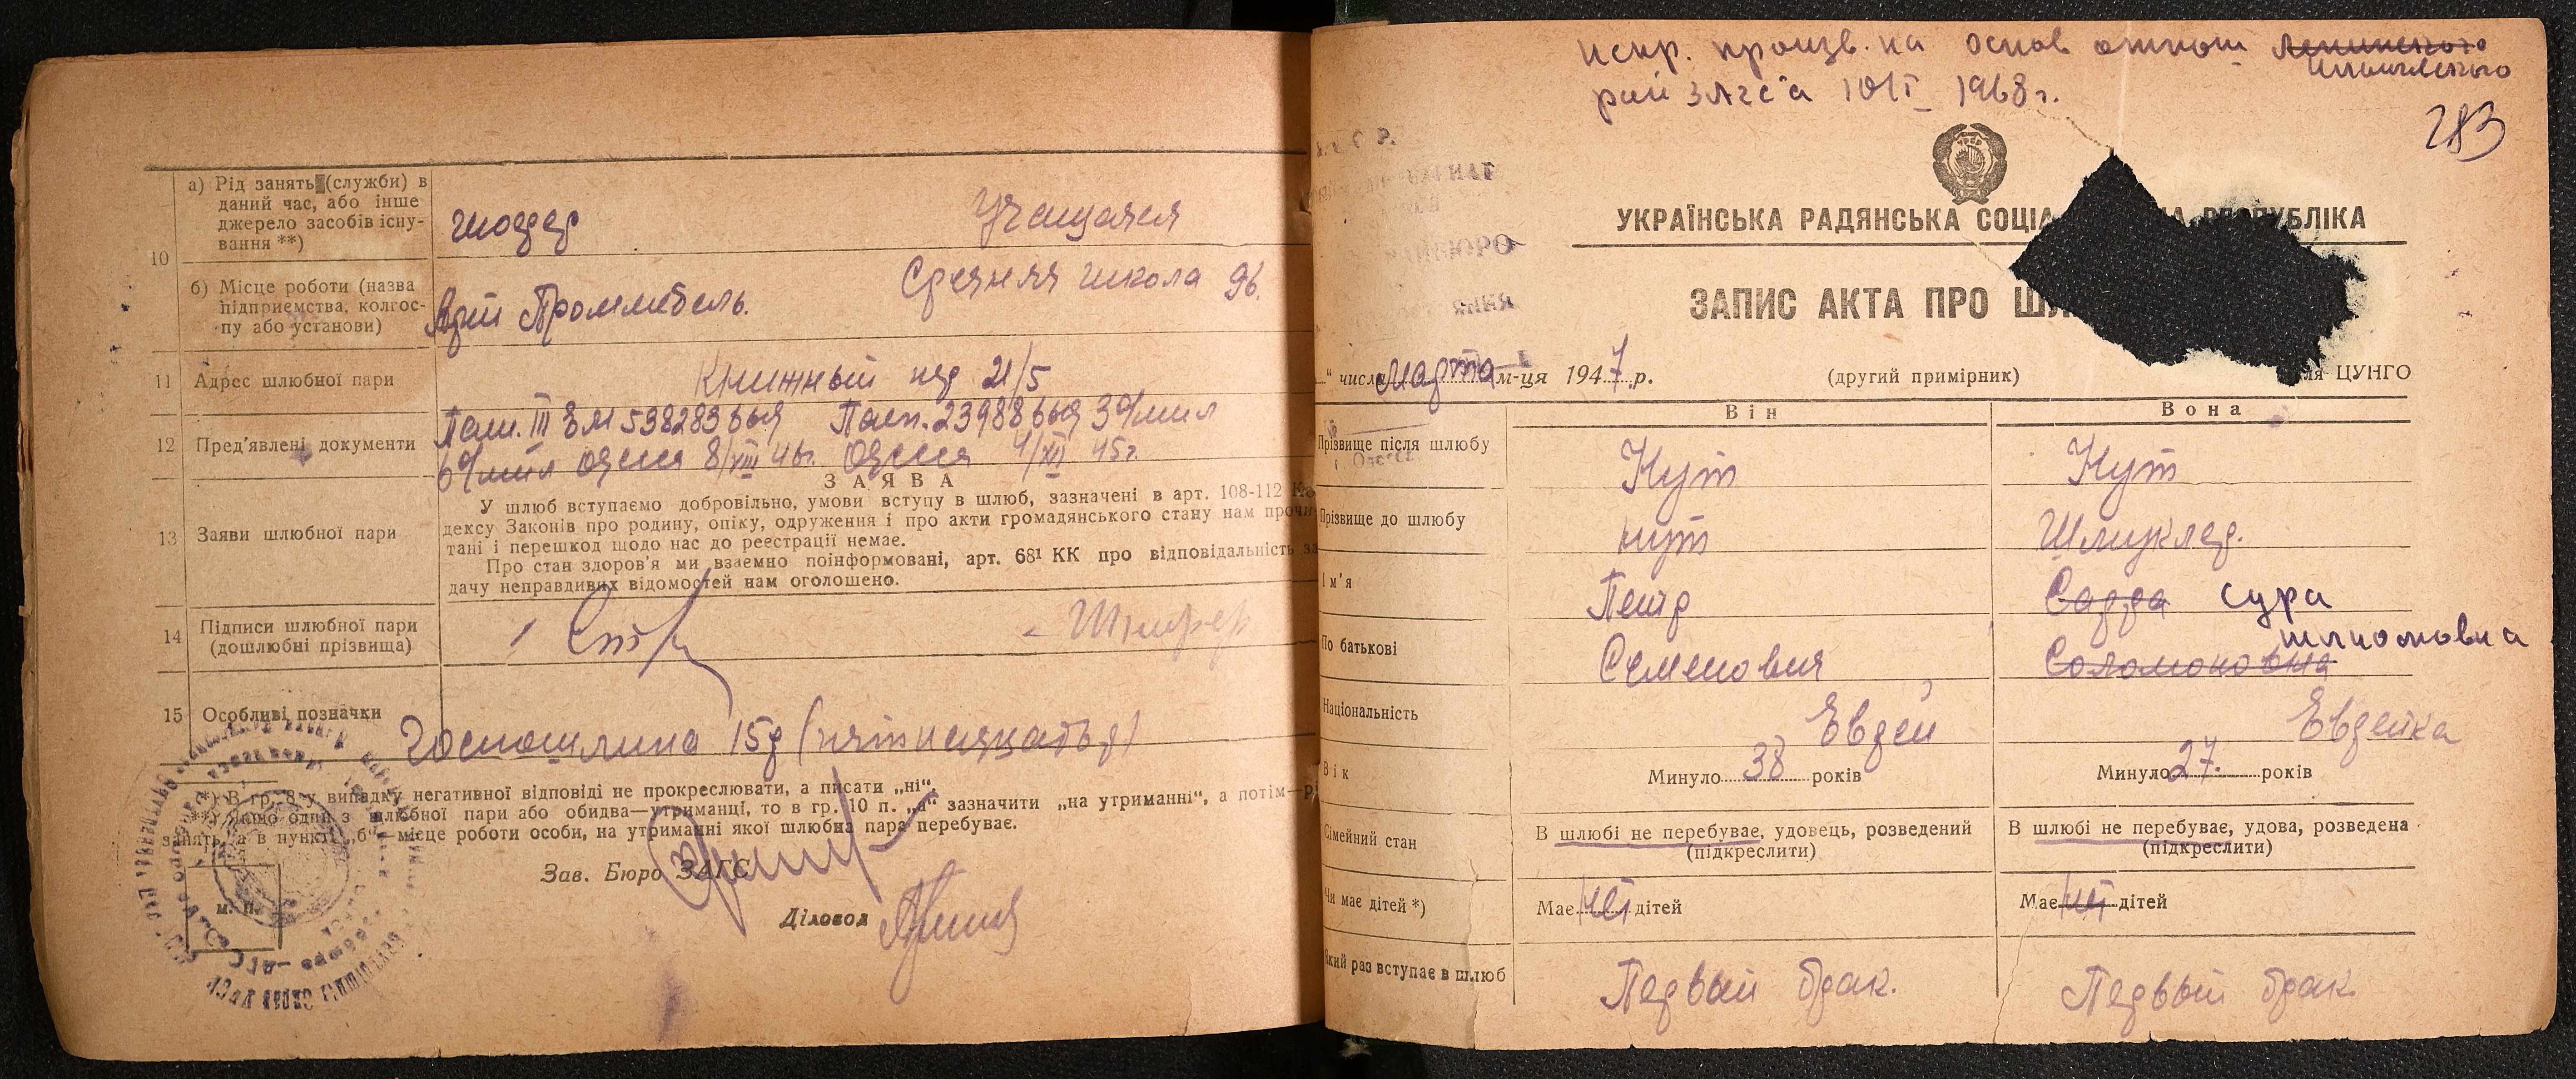 10
а) Рід занять (служби) в
даний час, або інше
джерело засобів існу-
вання **)
шофер
Учащаяся
б) Місце роботи (назва
підприємства, колгос-
пу або установи)
Арт Проммебель.
Средняя школа 96.
11 Адрес шлюбної пари
Книжный пер 21/5
12 Пред'явлені документи
538283 выд 23988 выд 3 о/мил
6 о/мил Одесса 8/VIII 46г. Одесса 4/XII 45г.
13 Заяви шлюбної пари
ЗАЯВА
У шлюб вступаємо добровільно, умови вступу в шлюб, зазначені в арт. 108-112 Ко-
дексу Законів про родину, опіку, одруження і про акти громадянського стану нам прочи-
тані і перешкод щодо нас до реєстрації немає.
Про стан здоров'я ми взаємно поінформовані, арт. 68¹ КК про відповідальність за
дачу неправдивих відомостей нам оголошено.
14 Підписи шлюбної пари
(дошлюбні прізвища)
15 Особливі позначки
Госпошлина 15р (пятнадцать р)
*) В гр. 8 у випадку негативної відповіді не прокреслювати, а писати „ні“.
**) Якщо один з шлюбної пари або обидва—утриманці, то в гр. 10 п. „а“ зазначити „на утриманні“, а потім—рі
занять, а в пункті „б“—місце роботи особи, на утриманні якої шлюбна пара перебуває.
Зав. Бюро ЗАГС
м. п.
Діловод
испр. произв. на основ отнош Ленинского
Ильичевского
рай ЗАГС'а 1968г.
283
УКРАЇНСЬКА РАДЯНСЬКА СОЦІА НА РЕСПУБЛІКА
ЗАПИС АКТА ПРО ШЛ
“ числа марта м-ця 1947 р.
(другий примірник)
ЦУНГО
Він
Вона
Прізвище після шлюбу
Кут
Кут
Прізвище до шлюбу
Кут
Ім'я
Петр
Сарра Сура
По батькові
Семенович
Шлиомовна
Соломоновна
Національність
Еврей
Еврейка
Вік
Минуло 38 років
Минуло 27. років
Сімейний стан
В шлюбі не перебуває, удовець, розведений
(підкреслити)
В шлюбі не перебуває, удова, розведена
(підкреслити)
Чи має дітей *)
Має нет дітей
Має нет дітей
Який раз вступає в шлюб
Первый брак.
Первый брак